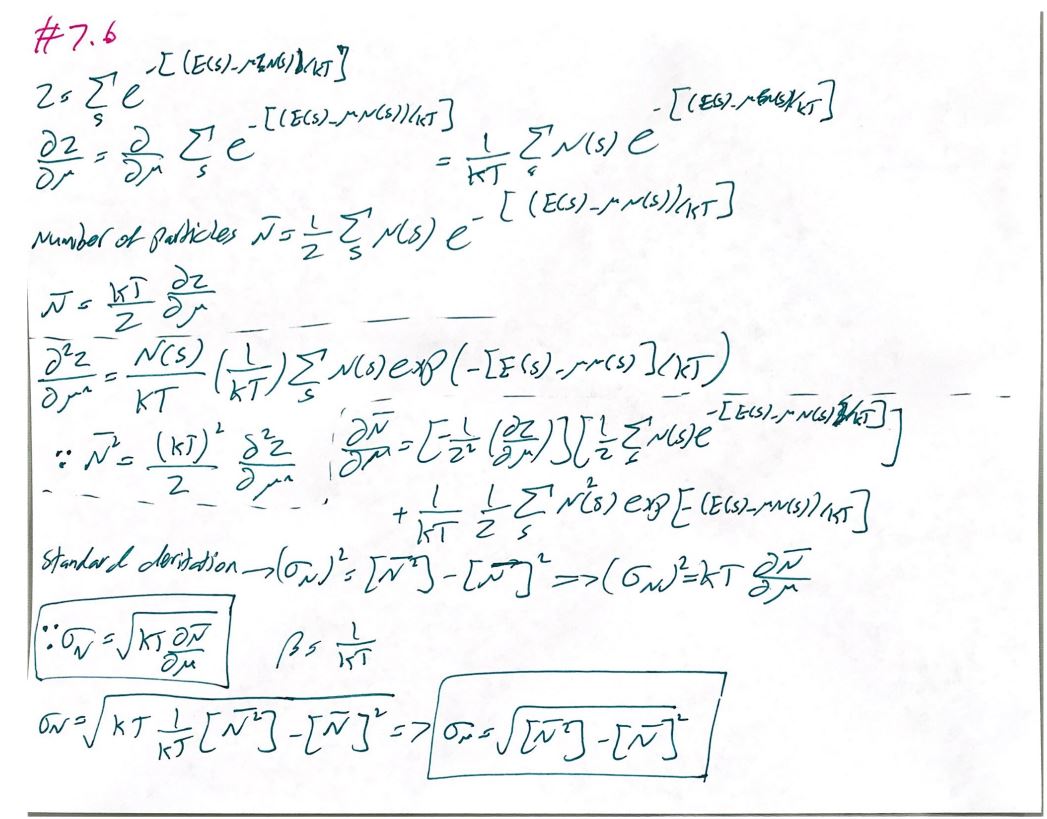 #7.6
Z = Σ_s e^{-[(E(s)-μN(s))/kT]}
∂Z/∂μ = ∂/∂μ Σ_s e^{-[(E(s)-μN(s))/kT]} = 1/kT Σ_s N(s) e^{-[(E(s)-μN(s))/kT]}
Number of particles N̄ = 1/Z Σ_s N(s) e^{-[(E(s)-μN(s))/kT]}
N̄ = kT/Z ∂Z/∂μ
∂²Z/∂μ² = N̄(s)/kT (1/kT) Σ_s N(s) exp(-[E(s)-μN(s)]/kT)
∵ N̄² = (kT)²/Z ∂²Z/∂μ² ∂N̄/∂μ = [-1/Z² (∂Z/∂μ)][1/Z Σ_s N(s) e^{-[E(s)-μN(s)/kT]}]
+ 1/kT 1/Z Σ_s N²(s) exp[-(E(s)-μN(s))/kT]
Standard deritation → (σ_N)² = [N̄²] - [N̄]² => (σ_N)² = kT ∂N̄/∂μ
∵ σ_N = √(kT ∂N̄/∂μ) β = 1/kT
σ_N = √(kT 1/kT [N̄²] - [N̄]²) => σ_N = √([N̄²] - [N̄]²)